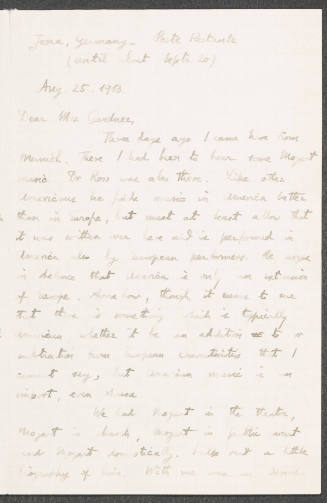 Jena, Germany - Poste Restante
(until about Sept. 20)
Aug 25. 1913.
Dear Mrs Gardner,
Three days ago I came here from
Munich. There I had been to hear some Mozart
music. Dr Ross was also there. Like other
Americans he finds music in America better
than in Europe, but must at least allow that
it was written over here and is performed in
America also by European performers. He argues
in defence that America is only an extension
of Europe. Anyhow, though, it seems to me
that there is something which is typically
American whether it be an addition to or
subtraction from European characteristics that I
cannot say, but American music is an
import, even
We had Mozart in the theatre,
Mozart in church, Mozart in
and Mozart domestically. I also read a little
biography of him. With me was